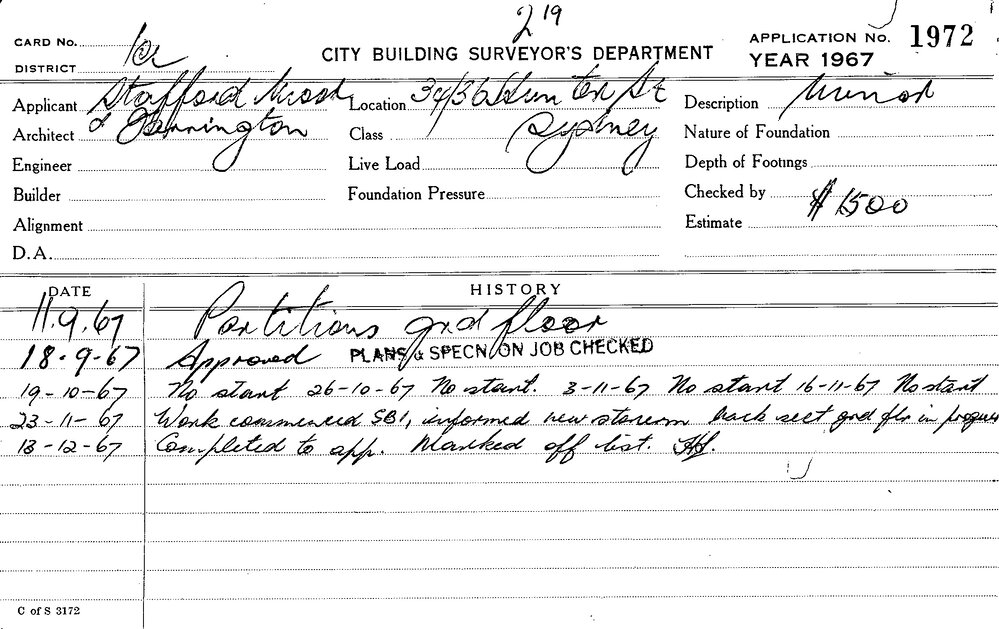 2 19
CARD No. 1a
DISTRICT
CITY BUILDING SURVEYOR'S DEPARTMENT
APPLICATION No. 1972
YEAR 1967
Applicant Stafford
Architect & Farrington
Engineer
Builder
Alignment
D.A.
Location 34/36 Hunter St
Class Sydney
Live Load
Foundation Pressure
Description Minor
Nature of Foundation
Depth of Footings
Checked by
Estimate $1500
DATE HISTORY
11.9.67 Partitions grd floor
18-9-67 Approved PLANS & SPECN ON JOB CHECKED
19-10-67 No start 26-10-67 No start. 3-11-67 No start 16-11-67 No start
23-11-67 Work commenced SB1, informed new storerm back sect grd flr in progress
13-12-67 Completed to app. Marked off list.
C of S 3172